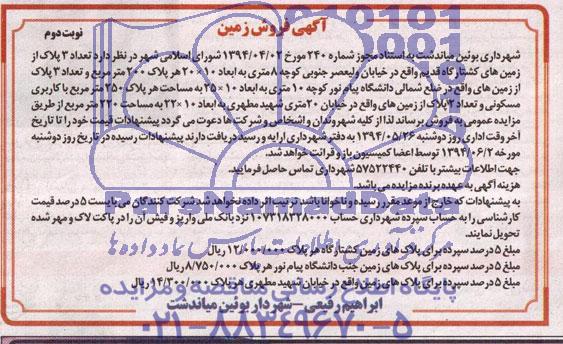 آگهی فروش زمین
نوبت دوم
شهرداری بوئین میاندشت به استناد مجوز شماره ۲۴۰ مورخ ۱۳۹۴/۰۴/۰۲ شورای اسلامی شهر در نظر دارد تعداد ۳ پلاک از
زمین های کشتارگاه قدیم واقع در خیابان ولیعصر جنوبی کوچه ۸ متری به ابعاد ۱۰×۲۰ هر پلاک ۲۰۰ متر مربع و تعداد ۳ پلاک
از زمین های واقع در ضلع شمالی دانشگاه پیام نور کوچه ۱۰ متری به ابعاد ۱۰×۲۵ به مساحت هر پلاک ۲۵۰ متر مربع با کاربری
مسکونی و تعداد ۲ پلاک از زمین های واقع در خیابان ۲۰ متری شهید مطهری به ابعاد ۱۰×۲۲ به مساحت ۲۲۰ متر مربع از طریق
مزایده عمومی به فروش برساند لذا از کلیه شهروندان و اشخاص و شرکت ها دعوت می گردد پیشنهادات قیمت خود را تا تاریخ
آخر وقت اداری روز دوشنبه ۱۳۹۴/۰۵/۲۶ به دفتر شهرداری ارایه و رسید دریافت دارند پیشنهادات رسیده در تاریخ روز دوشنبه
مورخه ۱۳۹۴/۰۶/۲ توسط اعضا کمیسیون باز و قرائت خواهد شد.
جهت اطلاعات بیشتر با تلفن ۵۷۵۲۲۴۴۰ شهرداری تماس حاصل فرمایید.
هزینه آگهی به عهده برنده مزایده می باشد.
به پیشنهادات که خارج از موعد مقرر رسیده و ناخوانا باشد ترتیب اثر داده نخواهد شد شرکت کنندگان می بایست ۵ درصد قیمت
کارشناسی را به حساب سپرده شهرداری حساب ۱۰۷۳۱۸۳۲۸۰۰۰ نزد بانک ملی واریز و فیش آن را در پاکت لاک و مهر شده
تحویل نمایند.
مبلغ ۵ درصد سپرده برای پلاک های زمین کشتارگاه هر پلاک ۱۲/۰۰۰/۰۰۰ ریال
مبلغ ۵ درصد سپرده برای پلاک های زمین جنب دانشگاه پیام نور هر پلاک ۸/۷۵۰/۰۰۰ ریال
مبلغ ۵ درصد سپرده برای پلاک های زمین واقع در خیابان شهید مطهری هر پلاک ۱۴/۳۰۰/۰۰۰ ریال
ابراهیم رفیعی - شهردار بوئین میاندشت
۰۲۱-۸۸۳۴۹۶۷۰-۵